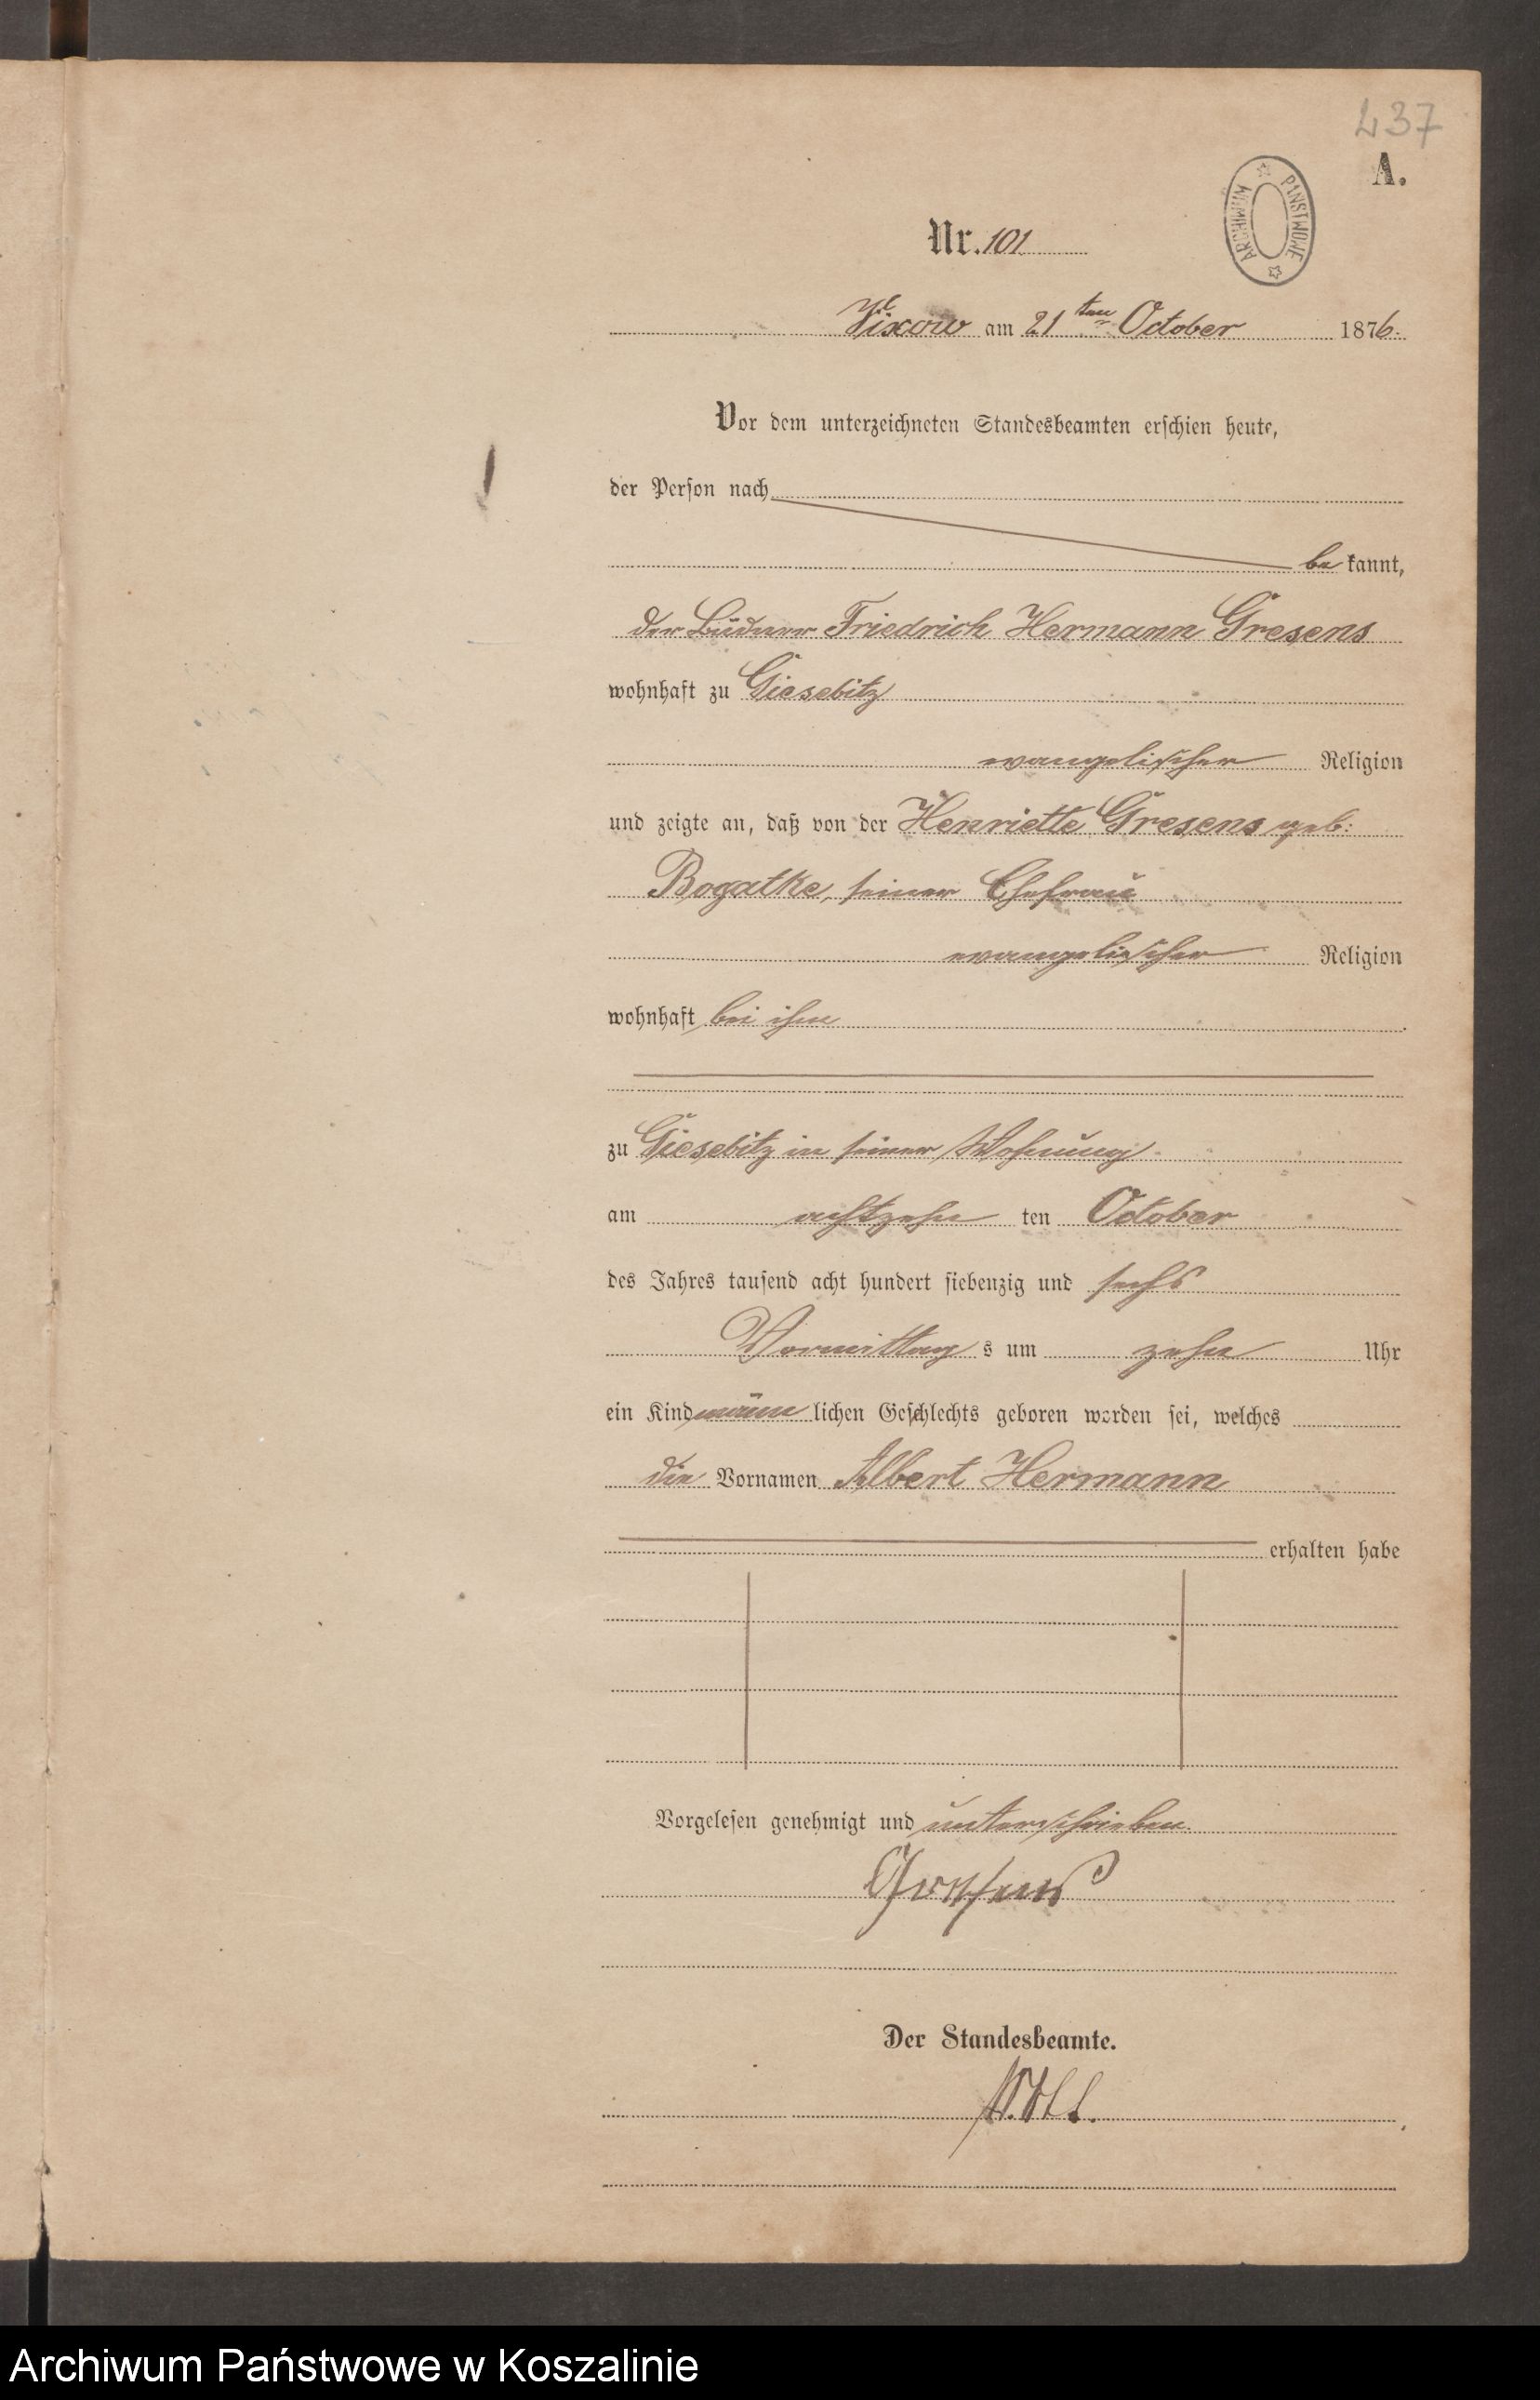 237
A.
ARCHIWUM PAŃSTWOWE
Nr. 101
Vixow am 21ten October 1876.
Vor dem unterzeichneten Standesbeamten erschien heute,
der Person nach
be kannt,
der Büdner Friedrich Hermann Gresens
wohnhaft zu Giesebitz
evangelischer Religion
und zeigte an, daß von der Henriette Gresens geb:
Bogatke, seiner Ehefrau
evangelischer Religion
wohnhaft bei ihm
zu Giesebitz in seiner Wohnung
am achtzehn ten October
des Jahres tausend acht hundert siebenzig und sechs
Vormittag s um zehn Uhr
ein Kind männ lichen Geschlechts geboren worden sei, welches
die Vornamen Albert Hermann
erhalten habe
Vorgelesen genehmigt und unterschrieben.
Gresens
Der Standesbeamte.
Archiwum Państwowe w Koszalinie